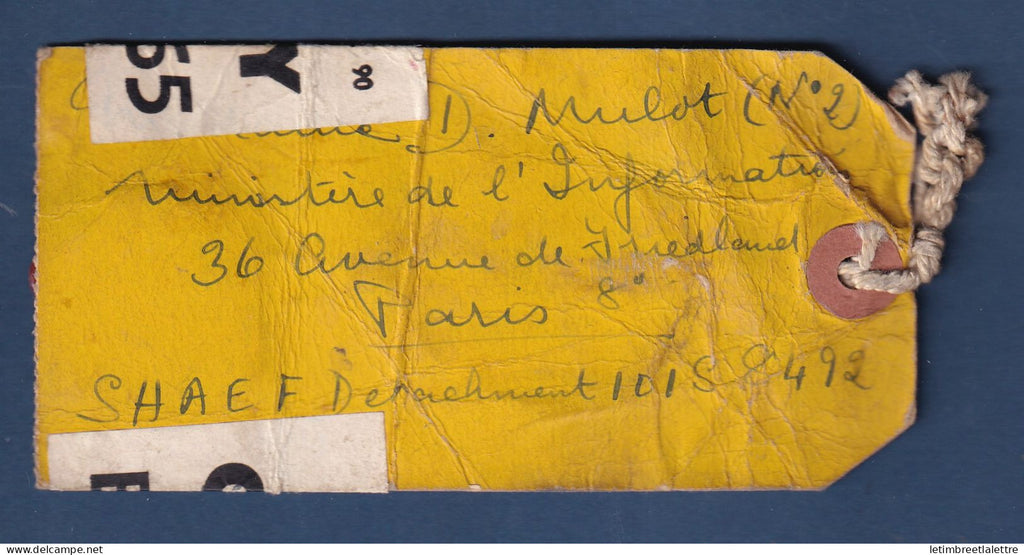 55 Y 90
D. Mulot (N° 2)
Ministère de l'Information
36 Avenue de Friedland
Paris 8°
SHAEF Detachment 101 S C 492
letimbreetlalettre.com